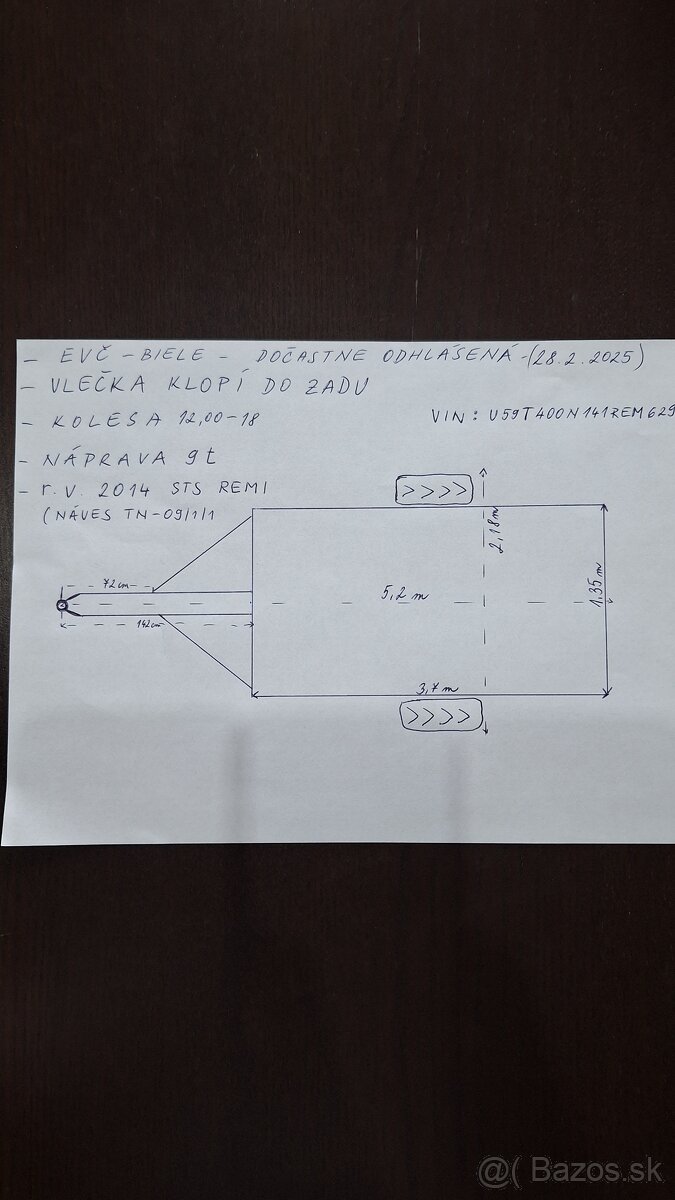 - EVČ - BIELE - DOČASTNE ODHLÁSENÁ - (28.2.2025)
- VLEČKA KLOPÍ DO ZADU
- KOLESA 12,00-18
VIN: U59T400N141REM629
- NÁPRAVA 9t
- r.v. 2014 STS REMI
(NÁVES TN-09/1/1
2,18m
72cm
5,2 m
1,35 m
142cm
3,7 m
@( Bazos.sk